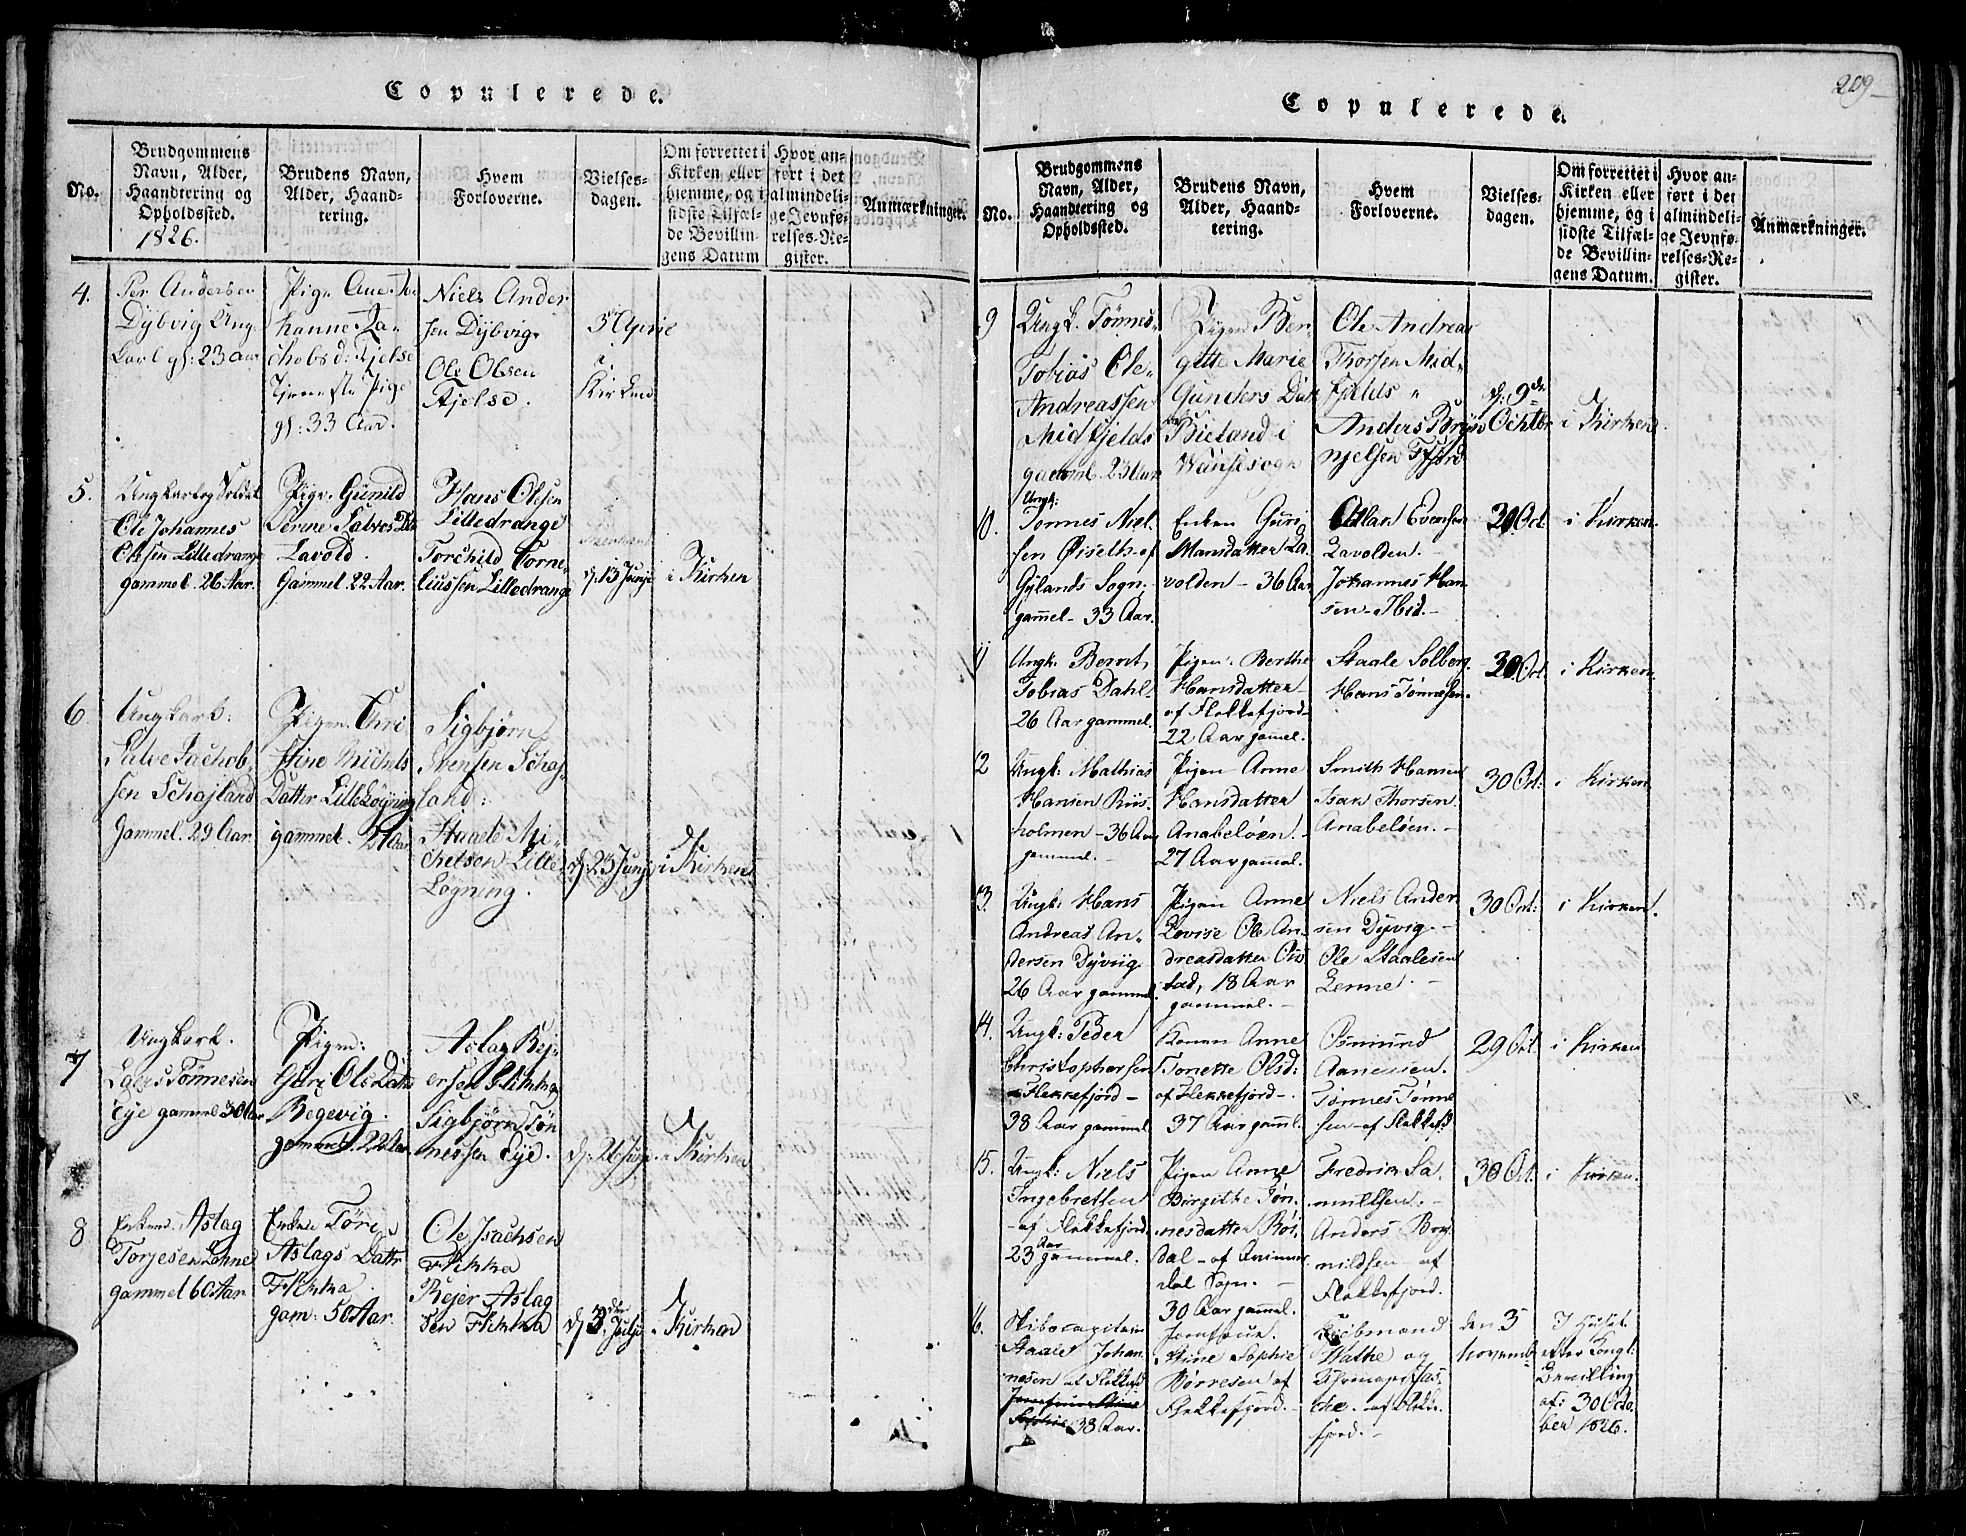 Copulerede.
No.
Brudgommens
Navn, Alder,
Haandtering og
Opholdssted.
1826.
Brudens Navn,
Alder, Haand-
tering.
Hvem
Forloverne.
Vielses-
dagen.
Om forrettet i
Kirken eller
hjemme, og i
sidste Tilfæl-
de Bevillin-
gens Datum
Hvor an-
ført i det
almindeli-
ge Jevnfø-
relses-Re-
gister.
Anmærkninger.
4.
Per Andersen
Dybvig Ung
karl gl: 23 aar
Pige Ane Jo
hanne Ja-
chobsd: Fjelse
Tjeneste Pige
gl: 33 Aar.
Niels Ander
sen Dybvig
Ole Olsen
Fjelse.
5 April
i
Kirken
5.
Ungkarl og Soldat
Ole Johannes
Olesen Lilledrange
gammel. 26 Aar.
Pige. Gunild
Serine Salves Dtr
Lavold.
Gammel. 22 Aar.
Hans Olesen
Lilledrange
Torchild Corne
liussen Lilledrange
d. 13 Junje
i Kirken
6.
Ungkarl:
Salve Jachob-
sen Schajland
Gammel. 29 Aar.
Pigen. Chri
stine Michels
Datter Lille Løgning
gammel. 21 Aar
Sigbjørn
Svensen Schaj-
land:
Staale Mi-
chelsen Lille
Løgning.
d. 25 Junje
i Kirken
7
Ungkarl.
Lars Tönnesen
Eye gammel 30 Aar
Pigen:
Guri Ols Datr
Regevig.
gammel. 22 Aar.
Aslag Rej-
ersen Flikka
Sigbjørn Tön
nessen Eye.
d. 26 Junje
i Kirken
8
Enkem. Aslag
Torjesen Lohne
gammel 60 Aar
Enken Töre
Aslags Datr
Flikka.
gam: 50 Aar.
Ole Isachsen
Flikka
Rejer Aslag
sen Flikka
d 3 den Julje
i Kirken
209
Copulerede.
No.
Brudgommens
Navn, Alder,
Haandtering og
Opholdssted.
Brudens Navn,
Alder, Haand-
tering.
Hvem
Forloverne.
Vielses-
dagen.
Om forrettet i
Kirken eller
hjemme, og i
sidste Tilfæl-
de Bevillin-
gens Datum.
Hvor an-
ført i det
almindeli-
ge Jevnfø-
relses-Re-
gister.
Anmærkninger.
9
Ungk. Tönnes
Tobias Ole-
Andreassen
Midfjelds
gaml. 23 Aar
Pigen Ber
gitte Marie
Gunders Datr
Bieland i
Wansesogn
Ole Andreas
Thorsen Mid-
fjelds
Anders Bryn
njelsen Fjord
d: 9de
Ochtbr
i Kirken
10.
Ungk:
Tönnes Niel
sen Øiseth af
Gylands Sogn
gammel - 33 Aar.
Enken Guri
Hansdatter La
volden - 36 Aar
Atlak Evensen
Lavolden. -
Johannes Han
sen - Ibid. -
30 Oct
i Kirken.
11
Ungk. Bernt
Tobias Dahl-
26 Aar gammel.
Pigen. Berthe
Hansdatter
af Flekkefjord
22 Aar gamel.
Staale Solberg
Hans Tönnesen.
30 Oct.
i Kirken.
12
Ungk: Mathias
Hansen Riis-
holmen - 36 Aar
gammel. -
Pigen Anne
Hansdatter
Anabelöen. -
27 Aar gammel.
Smith Hansen
Isak Thorsen
Anabelöen. -
30 Oct:
i Kirken
13.
Ungk: Hans
Andreas An-
dersen Dyvig
26 Aar gammel
Pigen Anne
Lovise Ole An-
dreasdatter Ous
tad, 18 Aar
gammel. -
Niels Ander
sen Dyvig. -
Ole Staalesen
Lenne. -
30 Oct:
i Kirken.
14.
Ungk: Peder
Christophersen
Flekkefjord -
38 Aar gammel
Konen Anne
Tonette Olsd:
af Flekkefjord -
37 Aar gaml.
Osmund
Aanensen.
Tönnes Tönne
sen - af Flekkefd
29 Oct
i Kirken
15.
Ungk: Niels
Ingebretsen
- af Flekkefjord
23 Aar gammel.
Pigen Anne
Birgithe Tön-
nesdatter Röi
dal - af
dal Sogn. -
30 Aar gammel.
Fredrik Sa
muelsen. -
Anders Bor
nildsen - af
Flekkefjord.
30 Oct.
i Kirken.
16.
Skibscapitain
Staale Johan
nesen af Flekkefd
Jomfrue Stine
Sophie 38 Aar.
Jomfrue
Stine Sophie
Börresen af
Flekkefjord. -
Kjöbmand
Wathe og
- af Flekke
fjord. -
den 3
Novembr
I Huset
efter Kongl:
Bevilling
af: 30 Octo
ber 1826.